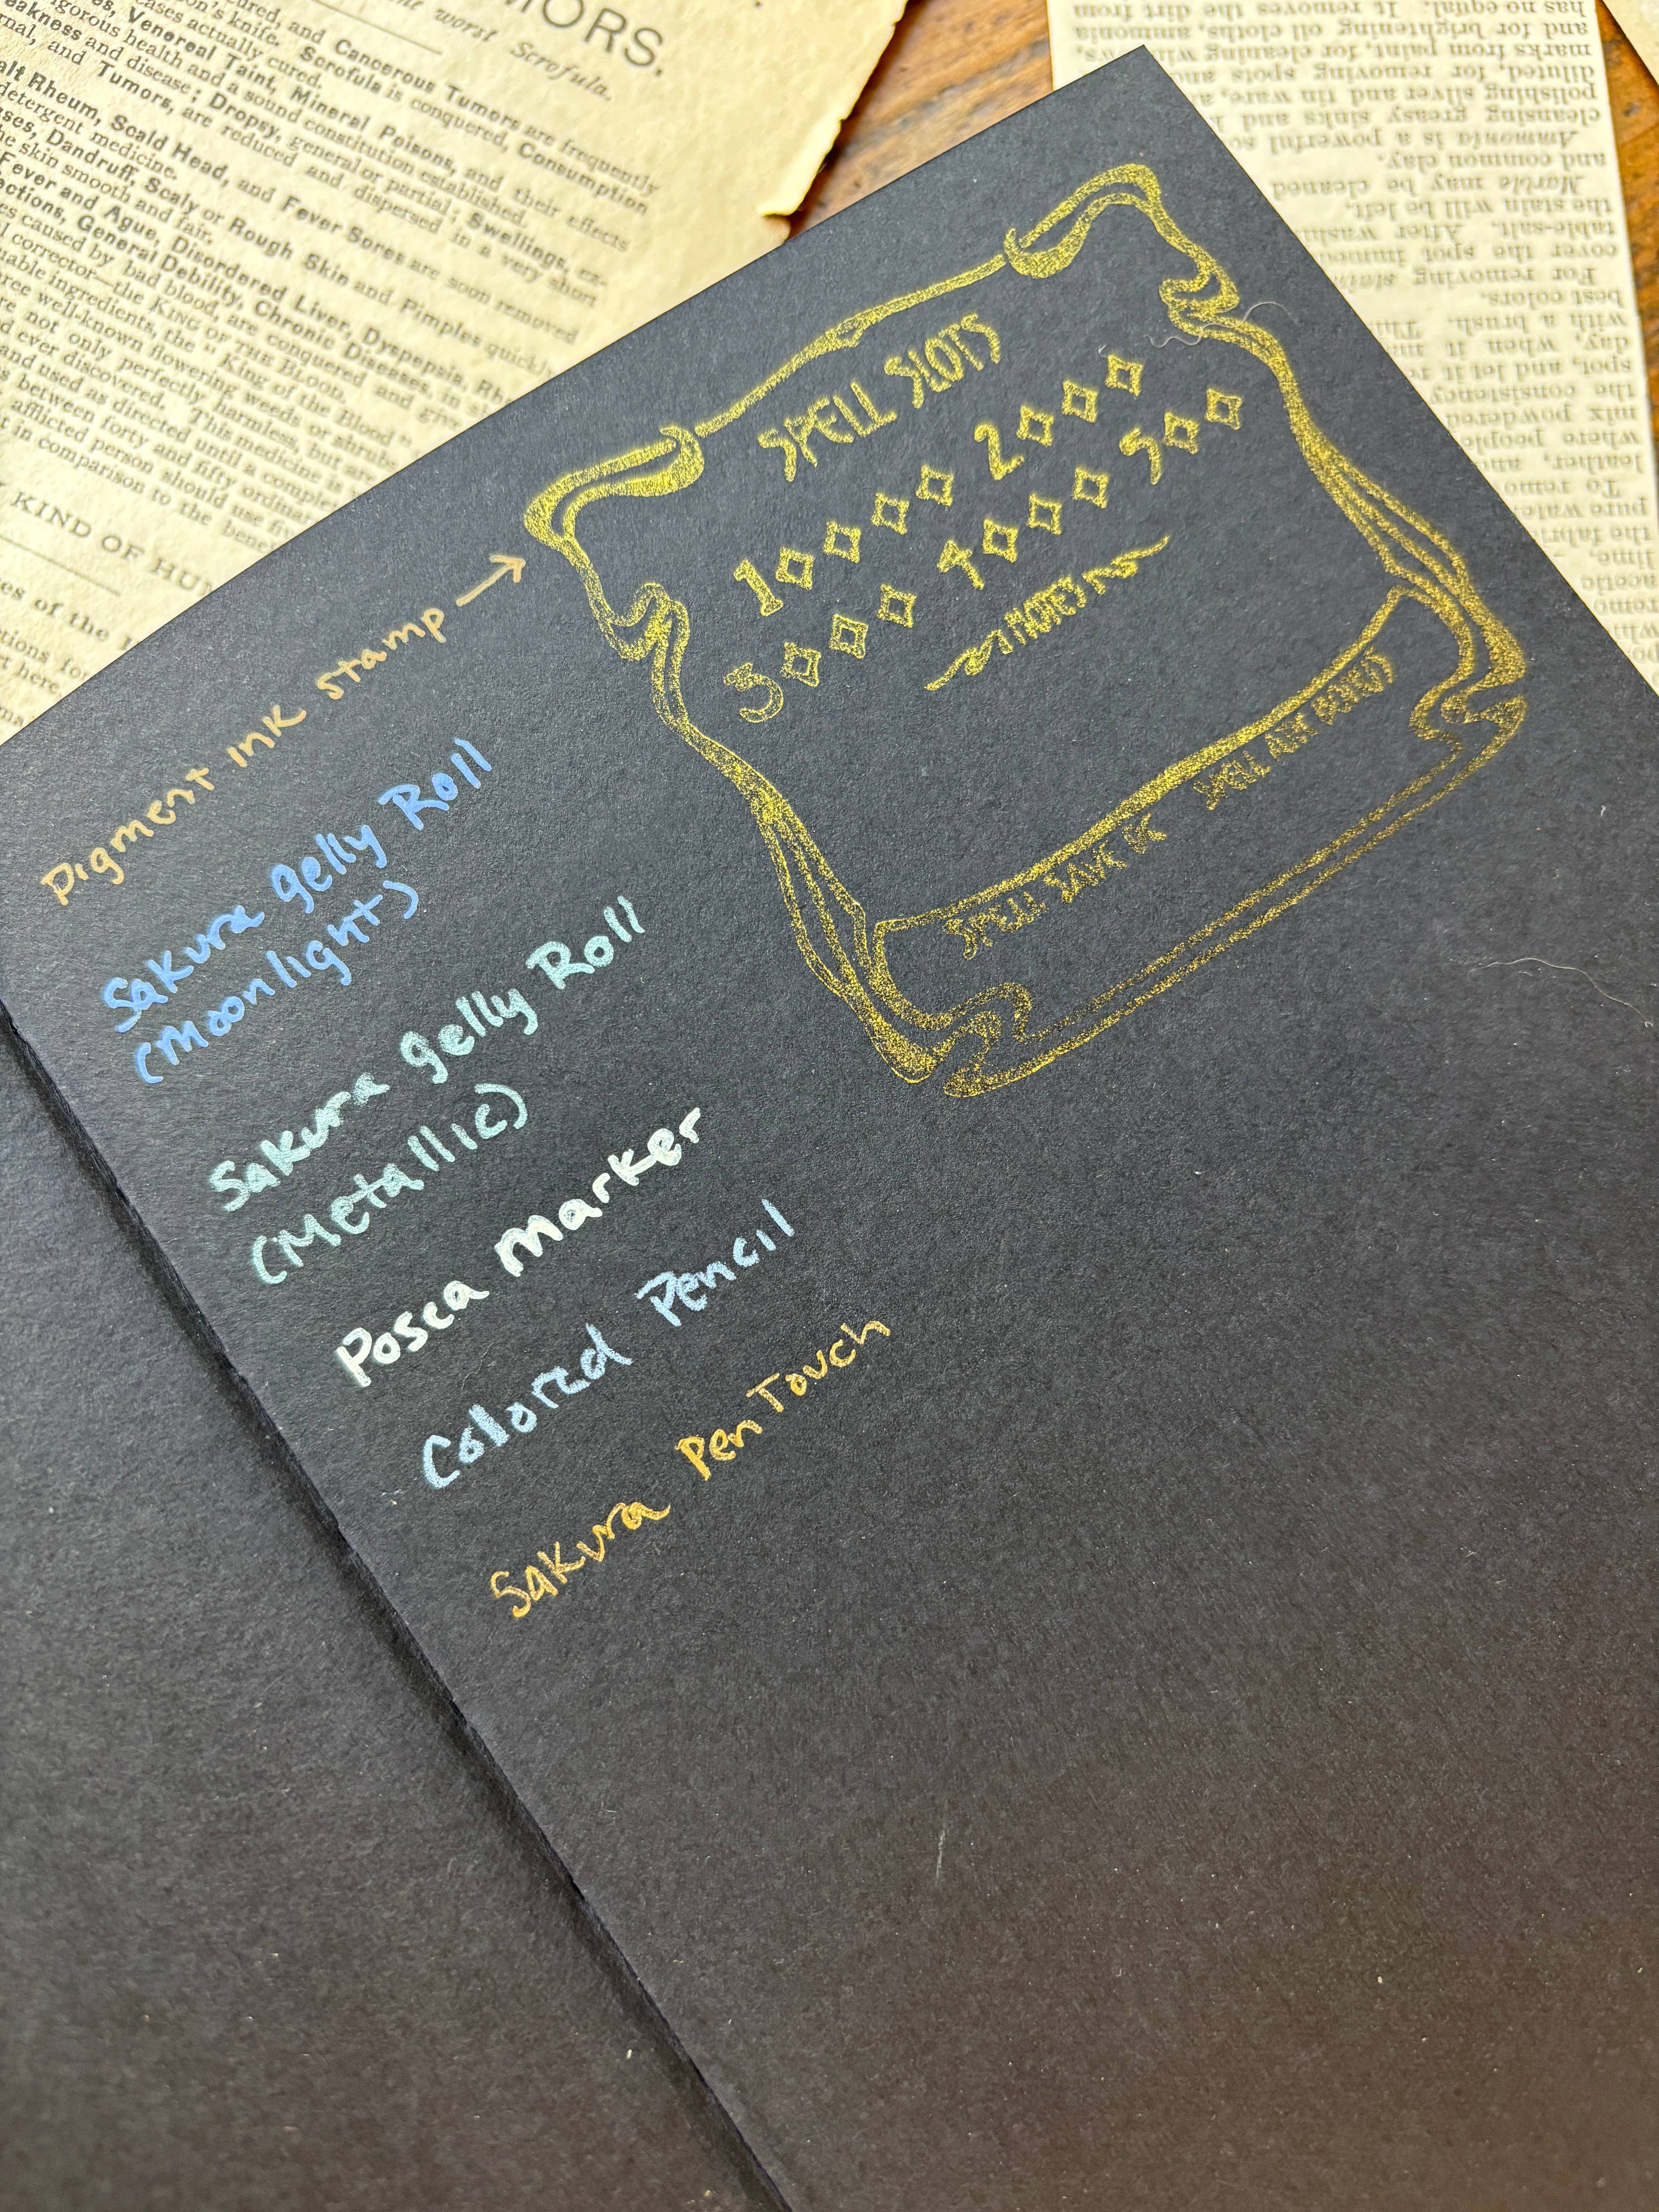 MORS,
worst Scrofula.
cured, and Cancerous Tumors are frequently
knife. Scrofula is conquered, Consumption
cases actually cured.
Venereal Taint, Mineral Poisons, and their effects
health and a sound constitution established.
and disease; Dropsy, general or partial; Swellings, ex-
and Tumors, are reduced and dispersed in a very short
Rheum, Scald Head, and Fever Sores are soon removed
detergent medicine.
Dandruff, Scaly or Rough Skin and Pimples
the skin smooth and fair.
Fever and Ague, Disordered Liver, Dyspepsia,
General Debility, Chronic Diseases in
caused by bad blood, are conquered and
corrector—the KING OF THE BLOOD.
ingredients, the "King of the Blood"
well-known flowering weeds or shrubs
not only perfectly harmless, but
ever discovered. This medicine is
and used as directed until a
between forty and fifty
afflicted person should use
in comparison to the
KIND OF
of the
for
here
Pigment Ink Stamp →
Sakura Gelly Roll
(Moonlight)
Sakura Gelly Roll
(Metallic)
Posca Marker
Colored Pencil
Sakura Pen Touch
SPELL SLOTS
1◇◇◇◇ 2◇◇◇
3◇◇◇ 4◇◇◇ 5◇◇
NOTES
SPELL SAVE DC SPELL ATK BONUS
lime,
the
pure
To
leather, and
where people
mix powdered
the consistency
spot, and let it
day, when it
with a brush.
best colors.
For removing
cover the spot
table-salt. After
the stain will be left.
Marble may be cleaned
and common clay.
Ammonia is a powerful
cleansing greasy sinks and
polishing silver and tin ware,
diluted, for removing spots
marks from paint, for cleaning windows,
and for brightening oil cloths, ammonia
has no equal. It removes the dirt from